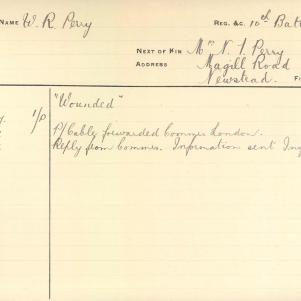 NAME W. R. Perry REG. &C. 10th Batt
NEXT OF KIN Mr N. T. Perry
ADDRESS Magill Road
Newstead.
"Wounded"
P/Cably forwarded Commrs London.
Reply from Commrs. Information sent